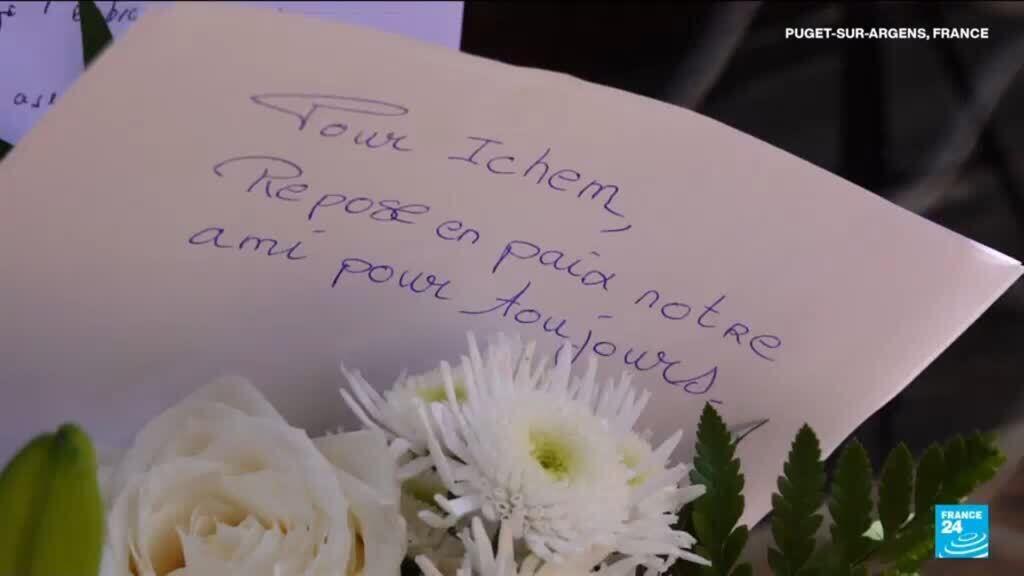 PUGET-SUR-ARGENS, FRANCE
Pour Ichem,
Repose en paix notre
ami pour toujours.
FRANCE
24